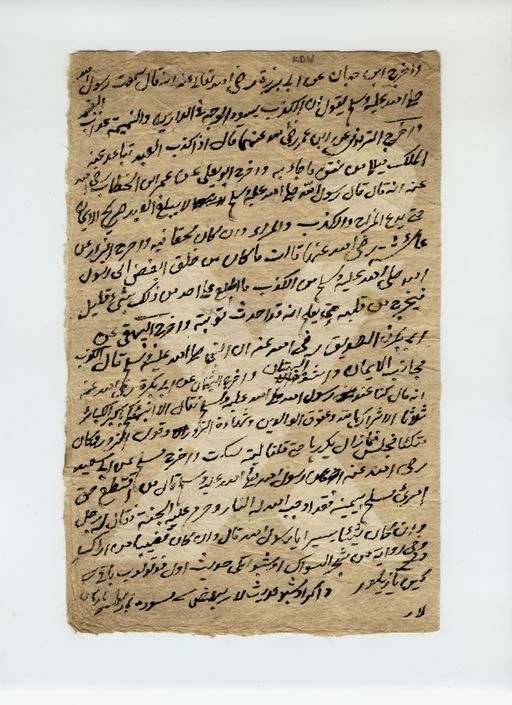 KDN
واخرج ابن حبان عن ابى برزة رضى الله تعالى عنه انه قال سمعت رسول الله
صلى الله عليه وسلم يقول ان الكذب يسود الوجه فى الدارين والنميمة عذاب القبر
واخرج الترمذى عن ابن عمر رضى الله عنهما قال اذا كذب العبد تباعد عنه
الملك ميلا من نتن ما جاء به واخرج ابو يعلى عن عمر ابن الخطاب رضى الله
عنه انه قال قال رسول الله صلى الله عليه وسلم لا يبلغ العبد صريح الايمان
حتى يدع المزاح والكذب والمراء وان كان محقا فيه واخرج البزار عن
عائشة رضى الله عنها قالت ما كان من خلق ابغض الى رسول
الله صلى الله عليه وسلم من الكذب ما اطلع على احد من ذلك بشئ قليل
فيخرج من قلبه حتى يعلم انه قد احدث توبة واخرج البيهقى عن
ابى بكر الصديق رضى الله عنه ان النبى صلى الله عليه وسلم قال الكذب
مجانب الايمان واخرج الشيخان عن ابى بكرة رضى الله عنه
انه قال كنا عند رسول الله صلى الله عليه وسلم فقال الا انبئكم باكبر الكبائر
ثلاثا الاشراك بالله وعقوق الوالدين وشهادة الزور وقول الزور وكان
متكئا فجلس فما زال يكررها حتى قلنا ليته سكت واخرج مسلم عن ابى
رضى الله عنه ان رسول الله صلى الله عليه وسلم قال من اقتطع حق
امرئ مسلم بيمينه فقد اوجب الله له النار وحرم عليه الجنة فقال له رجل
وان كان شيئا يسيرا يا رسول الله قال وان كان قضيبا من اراك
وفى رواية من شجر السواك اول
لار